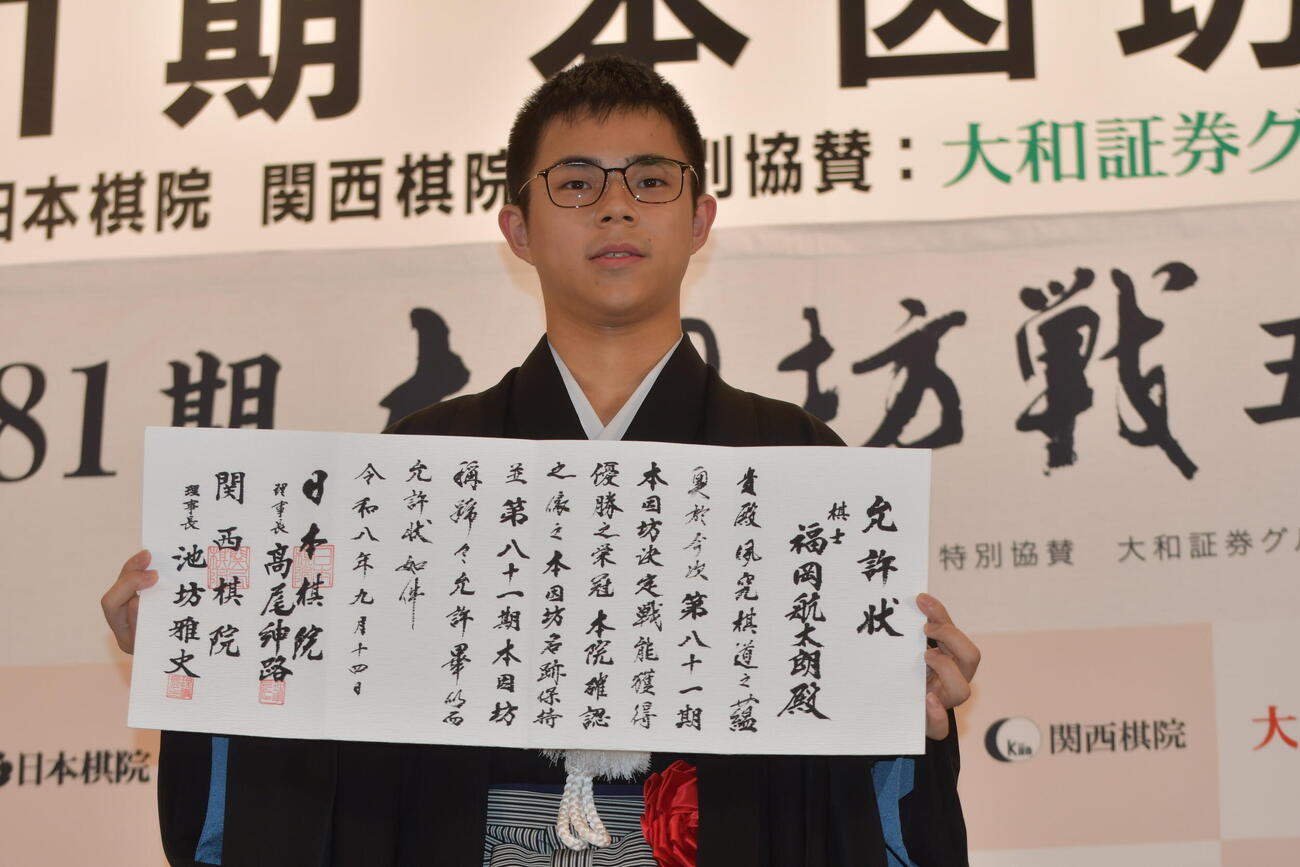 期 本因坊
日本棋院 関西棋院 特別協賛：大和証券グ
81期 本因坊戦
特別協賛 大和証券グル
允許状
棋士
福岡航太朗殿
貴殿夙究棋道之蘊
奥於今次第八十一期
本因坊決定戦能獲得
優勝之栄冠本院確認
之依之本因坊名跡保持
並第八十一期本因坊
稱號令允許畢仍而
允許状如件
令和八年九月十四日
日本棋院
理事長 高尾紳路
関西棋院
理事長 池坊雅史
日本棋院
Kiin 関西棋院
大